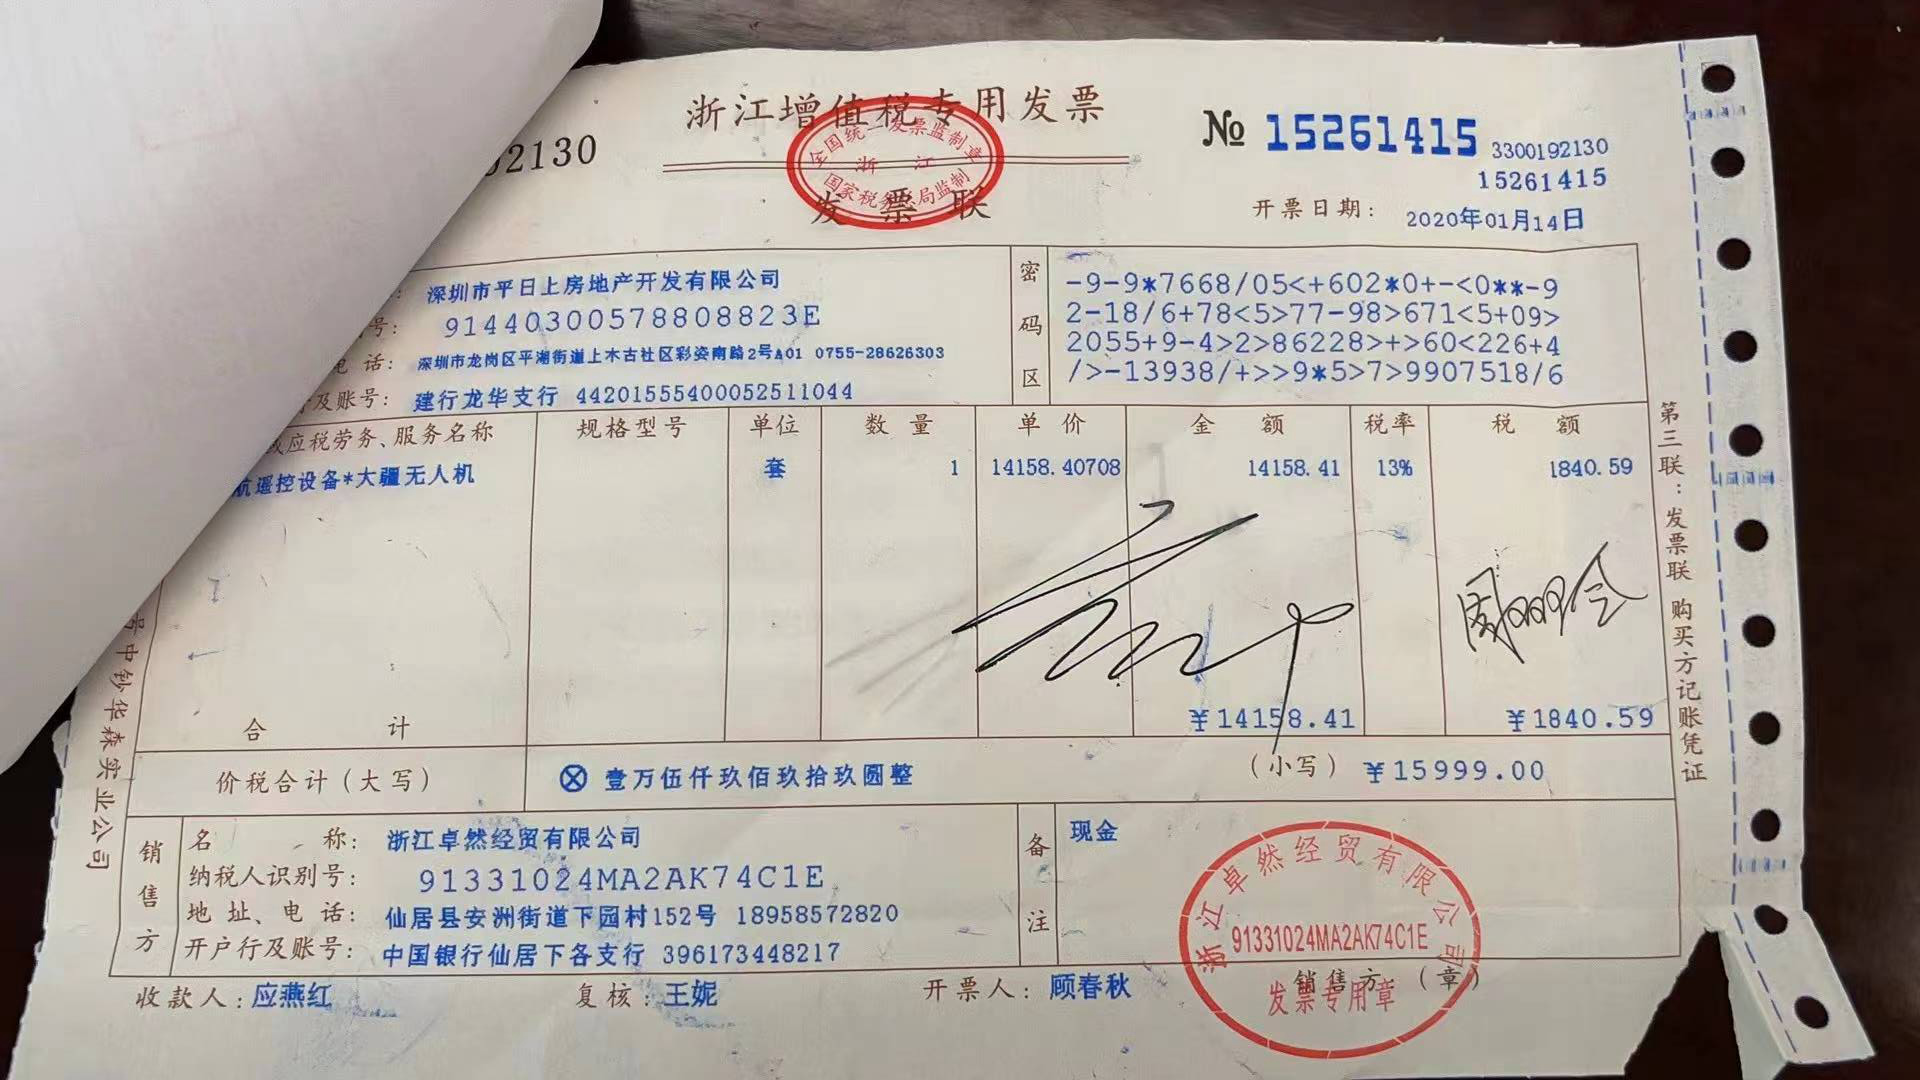 浙江增值税专用发票
全国统一发票监制章
浙 江
国家税务总局监制
发 票 联
2130
№ 15261415
3300192130
15261415
开票日期: 2020年01月14日
深圳市平日上房地产开发有限公司
号: 91440300578808823E
电 话: 深圳市龙岗区平湖街道上木古社区彩姿南路2号A01 0755-28626303
及账号: 建行龙华支行 44201555400052511044
密码区
-9-9*7668/05<+602*0+-<0**-9
2-18/6+78<5>77-98>671<5+09>
2055+9-4>2>86228>+>60<226+4
/>-13938/+>>9*5>7>9907518/6
或应税劳务、服务名称 规格型号 单位 数 量 单 价 金 额 税率 税 额
航遥控设备*大疆无人机 套 1 14158.40708 14158.41 13% 1840.59
合 计 ¥14158.41 ¥1840.59
价税合计(大写) ⊗ 壹万伍仟玖佰玖拾玖圆整 (小写) ¥15999.00
销售方
名 称: 浙江卓然经贸有限公司
纳税人识别号: 91331024MA2AK74C1E
地 址、电 话: 仙居县安洲街道下园村152号 18958572820
开户行及账号: 中国银行仙居下各支行 396173448217
备注
现金
浙江卓然经贸有限公司
91331024MA2AK74C1E
发票专用章
收款人: 应燕红 复核: 王妮 开票人: 顾春秋 销售方 (章)
第三联:发票联 购买方记账凭证
号中钞华森实业公司